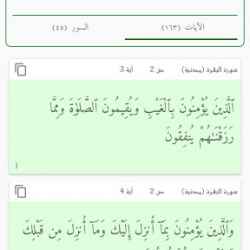 الآيات (١٦٣) السور (٤٥)
سورة البقرة (مدنية) ص 2 آية 3
ٱلَّذِينَ يُؤْمِنُونَ بِٱلْغَيْبِ وَيُقِيمُونَ ٱلصَّلَوٰةَ وَمِمَّا
رَزَقْنَـٰهُمْ يُنفِقُونَ
سورة البقرة (مدنية) ص 2 آية 4
وَٱلَّذِينَ يُؤْمِنُونَ بِمَآ أُنزِلَ إِلَيْكَ وَمَآ أُنزِلَ مِن قَبْلِكَ